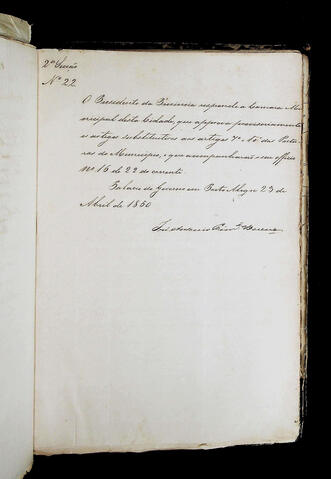 2ª Secção
Nº 22
O Presidente da Provincia responde a Camara Mu-
nicipal desta Cidade, que approva provisoriamente
o artigo substitutivo aos artigos 7º das Postu-
ras do Municipio, que acompanhará o seu officio
nº 16 de 22 do corrente.
Palacio do Governo em Porto Alegre 23 de
Abril de 1850
José Antonio Pimª Bueno